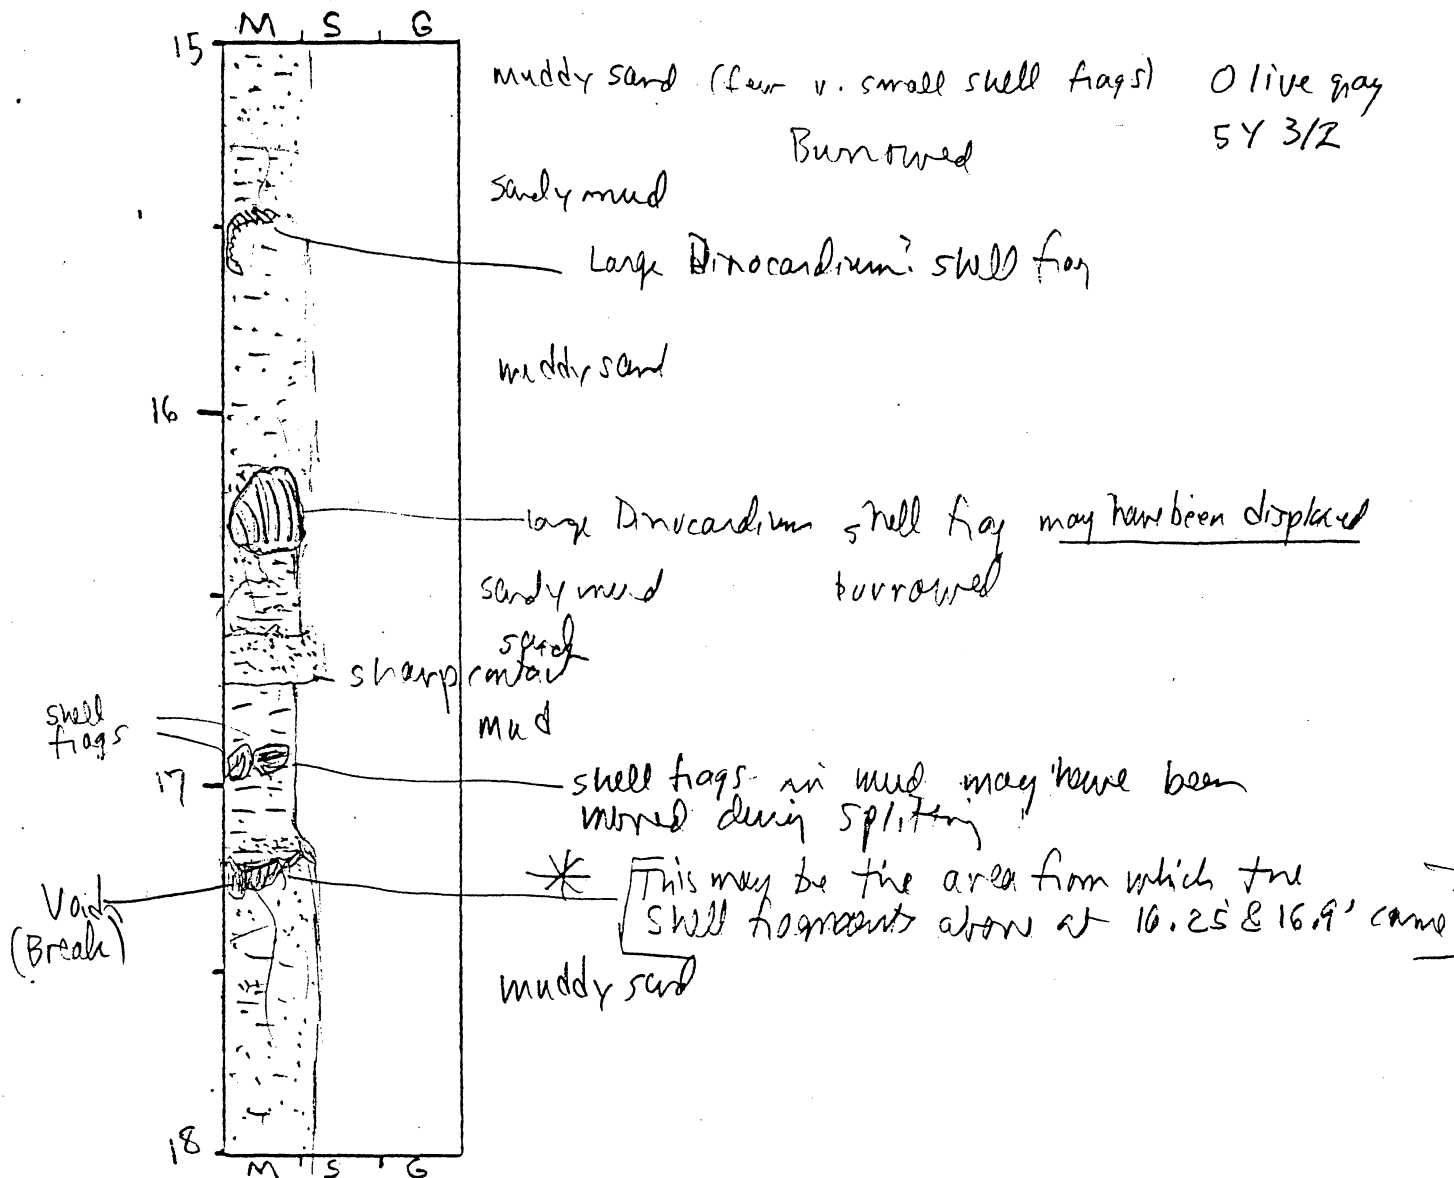 M S G
15
muddy sand (few v. small shell frags) Olive gray
5Y 3/2
Burrowed
sandy mud
Large Dinocardium? shell frag
muddy sand
16
large Dinocardium shell frag may have been displaced
sandy mud burrowed
sand
sharp contact
shell
frags
mud
17
shell frags in mud may have been
moved during spliting
* This may be the area from which the
shell fragments above at 16.25' & 16.9' came
Void
(Break)
muddy sand
18
M S G